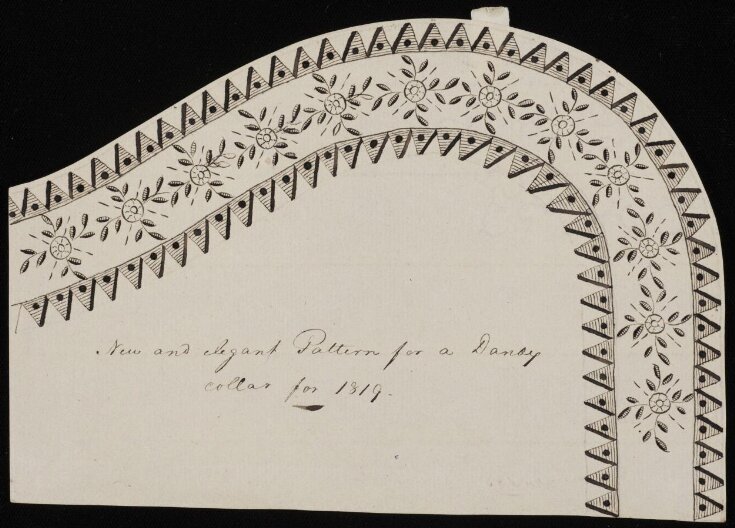 New and elegant Pattern for a Dandy
collar for 1819.